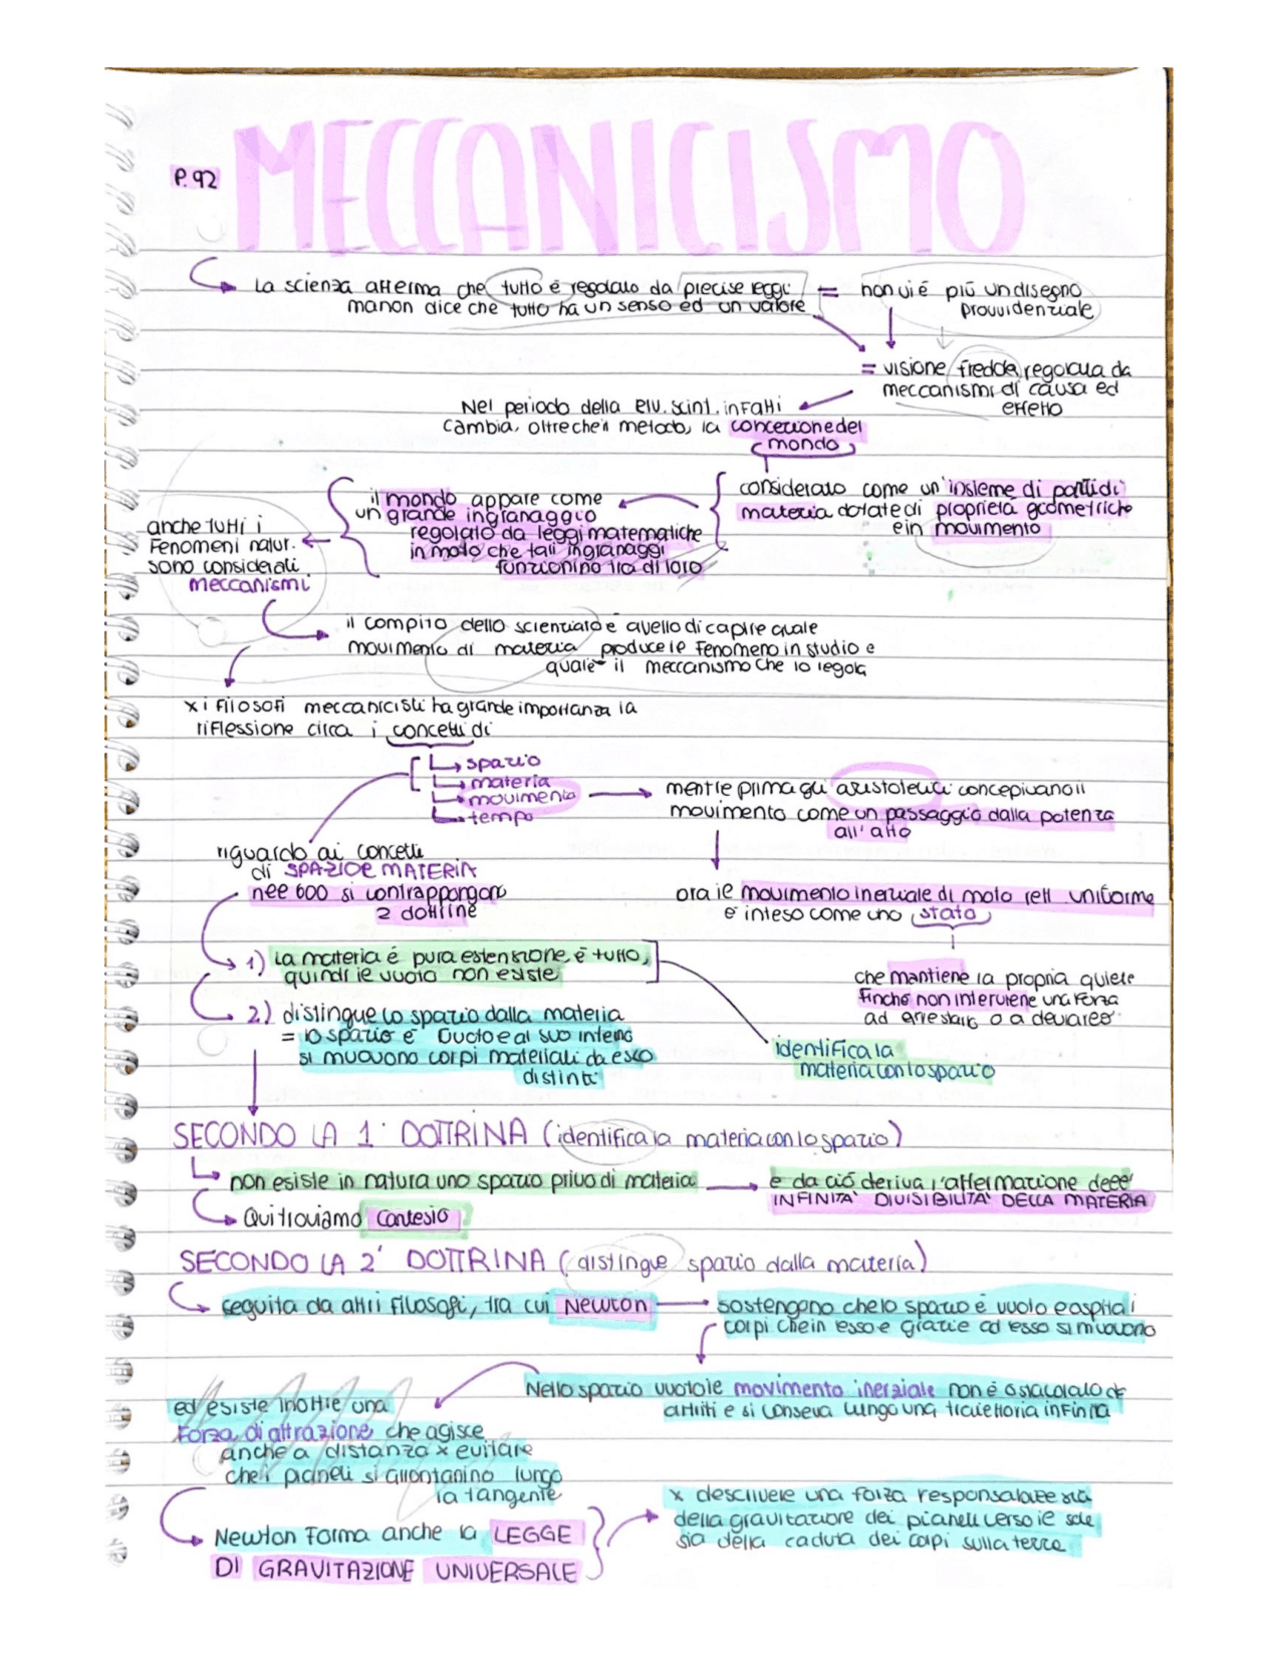 MECCANICISMO
P. 92
La scienza afferma che tutto è regolato da precise leggi
ma non dice che tutto ha un senso ed un valore
= non vi è più un disegno
provvidenziale
= visione fredda, regolata da
meccanismi di causa ed
effetto
Nel periodo della riv. scint. infatti
cambia, oltre che il metodo, la concezione del
mondo
considerato come un insieme di parti di
materia dotate di proprietà geometriche
e in movimento
il mondo appare come
un grande ingranaggio
regolato da leggi matematiche
in moto che tali ingranaggi
funzionino tra di loro
anche tutti i
Fenomeni natur.
sono considerati
meccanismi
il compito dello scienziato è quello di capire quale
movimento di materia produce il Fenomeno in studio e
qual è il meccanismo che lo regola
x i filosofi meccanicisti ha grande importanza la
riflessione circa i concetti di
spazio
materia
movimento
tempo
mentre prima gli aristotelici concepivano il
movimento come un passaggio dalla potenza
all'atto
riguardo ai concetti
di SPAZIO E MATERIA
nel 600 si contrappongono
2 dottrine
ora il movimento inerziale di moto rett uniforme
è inteso come uno stato
che mantiene la propria quiete
finché non interviene una forza
ad arrestarlo o a deviarlo
1) la materia è pura estensione, è tutto,
quindi il vuoto non esiste
2) distingue lo spazio dalla materia
= lo spazio è vuoto e al suo interno
si muovono corpi materiali da esso
distinti
identifica la
materia con lo spazio
SECONDO LA 1° DOTTRINA (identifica la materia con lo spazio)
non esiste in natura uno spazio privo di materia
e da ciò deriva l'affermazione dell'
INFINITA' DIVISIBILITA' DELLA MATERIA
Qui troviamo Cartesio
SECONDO LA 2° DOTTRINA (distingue spazio dalla materia)
seguita da altri filosofi, tra cui Newton
sostengono che lo spazio è vuoto e ospita i
corpi che in esso e grazie ad esso si muovono
Nello spazio vuoto il movimento inerziale non è ostacolato da
attriti e si conserva lungo una traiettoria infinita
ed esiste inoltre una
Forza di attrazione che agisce
anche a distanza x evitare
che i pianeti si allontanino lungo
la tangente
Newton Forma anche la LEGGE
DI GRAVITAZIONE UNIVERSALE
x descrivere una forza responsabile sia
della gravitazione dei pianeti verso il sole
sia della caduta dei corpi sulla terra